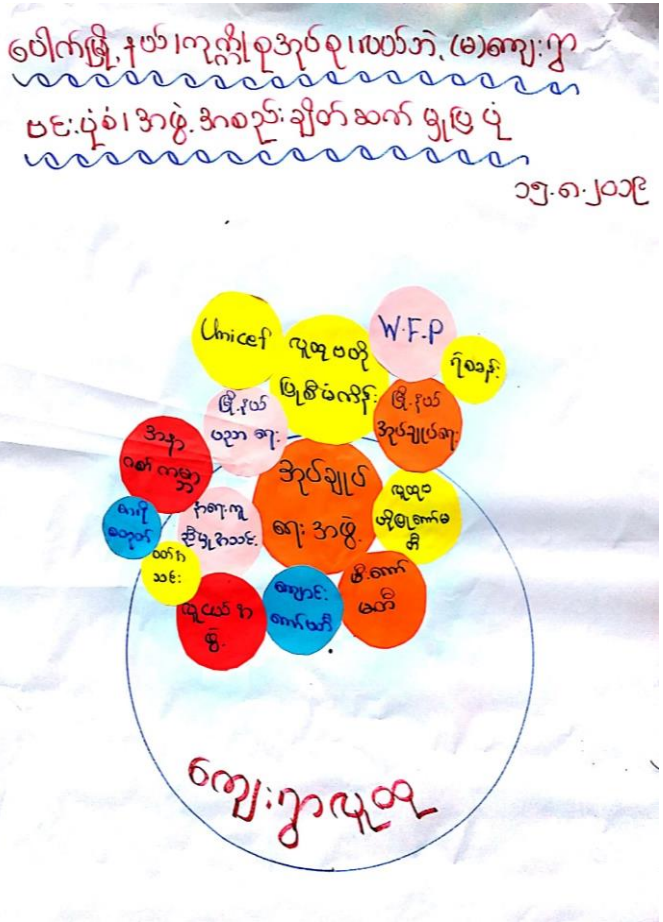 ပေါက်မြို့နယ်၊ကုက္ကိုစုအုပ်စု၊လယ်ဘဲ့(မ)ကျေးရွာ
ဗင်းပုံစံ၊အဖွဲ့အစည်းချိတ်ဆက်မှုပြပုံ
၁၅.၈.၂၀၁၉
Unicef
လူထုဗဟို
ပြုစီမံကိန်း
W.F.P
ရဲစခန်း
မြို့နယ်
ပညာရေး
မြို့နယ်
အုပ်ချုပ်ရေး
အနာ
ဂတ်ကမ္ဘာ
အုပ်ချုပ်
ရေးအဖွဲ့
လူထုဗ
ဟိုပြုကော်မ
တီ
နာရေးကူ
ညီမှုအသင်း
ဝတ်အ
သင်း
လူငယ်အ
ဖွဲ့
ကျောင်း
ကော်မတီ
မီးကော်
မတီ
ကျေးရွာလူထု